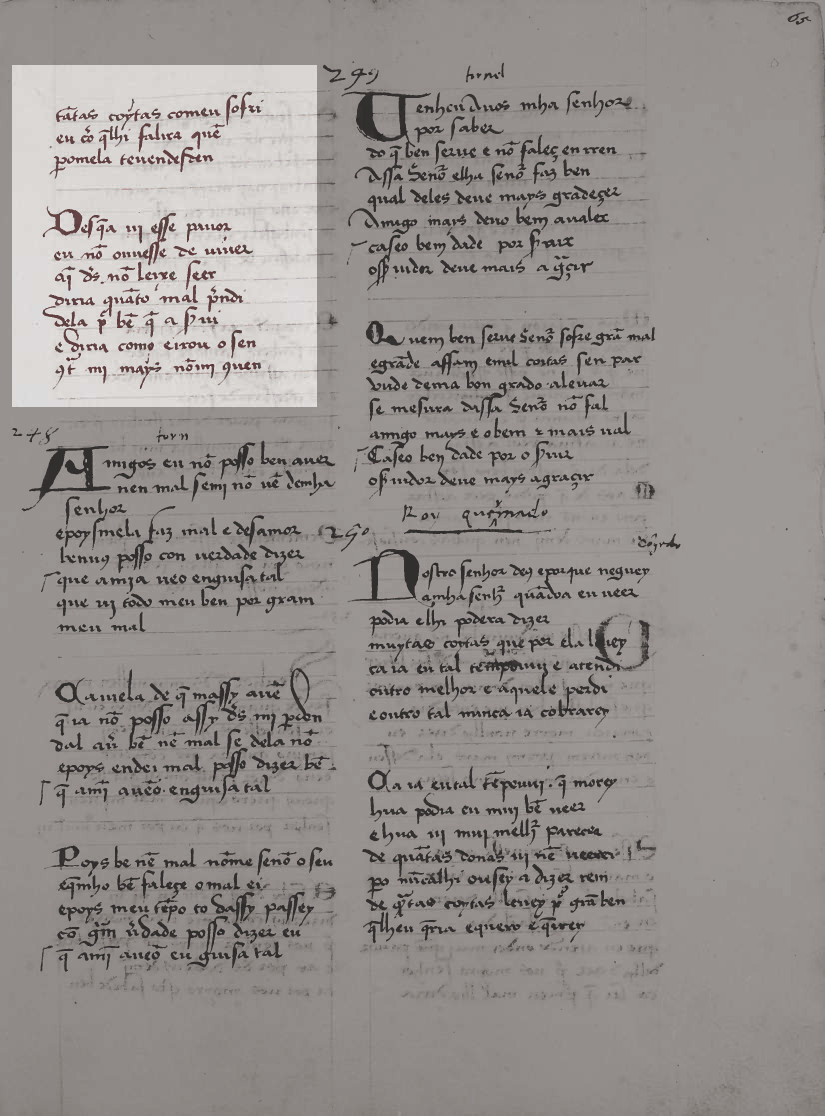 65
tãtas coytas comeu sofri
eu cõ q̃lhi falira quẽ
pomela tevendesden
Desq̃a ui esse pauor
eu nõ ouuesse de uiuer
aĩ ds̃ nõ leixe seer
diria quãto mal p̃ndi
dela p̃ bẽ q̃ a s̃rui
e diria como eixou o sen
mi mays nõmi quen
248
torn
Amigos eu nõ posso ben auer
nen mal semj nõ uẽ demha
senhor
epoysmela faz mal e desamor
benuꝯ posso con uerdade dizer
que amja ueo enguisa tal
que uj todo meu ben por gram
meu mal
Ca mela de q̃ massy auẽ
q̃ ia nõ posso assy ds̃ mi p̃don
dal au̾ bẽ nẽ mal se dela nõ
epoys endei mal posso dizer bẽ
q̃ amĩ aueo enguisa tal
Poys be nẽ mal nõme senõ o seu
bẽ faleçe omal ei
epoys meu tẽpo to dassy passey
cõ g̃m ũdade posso dizer eu
q̃ amĩ aueo en guisa tal
249
tornel
Tenheu Auos mha senhor
por saber
do q̃ ben serue e nõ faleç en rren
Assa senõ elha senõ faz ben
qual deles deue mays gradeçer
Amigo mais deuo bem aualer
caseo bem dade por s̃uir
os̃uidor deue mais a g̃çir
Quem ben serue senõ sofre grã mal
egrãde affam emil coitas sen par
vnde deuia bon grado aleuar
se mesura dassa senõ nõ fal
amigo mays e obem & mais ual
Caseo ben dade por o s̃uir
os̃uidor deue mays agraçir
Roy queymado
250
Nostro senhor deꝯ eporque neguey
amha senhr̃ quãdoa eu ueer
podia elhi podera dizer
muytas coitas que por ela leuey
ca ia eu tal tempouuj e atendi
outro melhor e aquele perdi
e outro tal nunca ia cobrarey
Ca ia eu tal tẽpouuj q̃ morey
hua podia eu mui bẽ ueer
e hua ui muj mellr̃ pareçer
de quãtas donas ui nẽ ueerei
po nũcalhi ousey a dizer rem
de q̃tas coytas leuey p̃ grã ben
q̃lheu q̃ria equero e q̃rrey